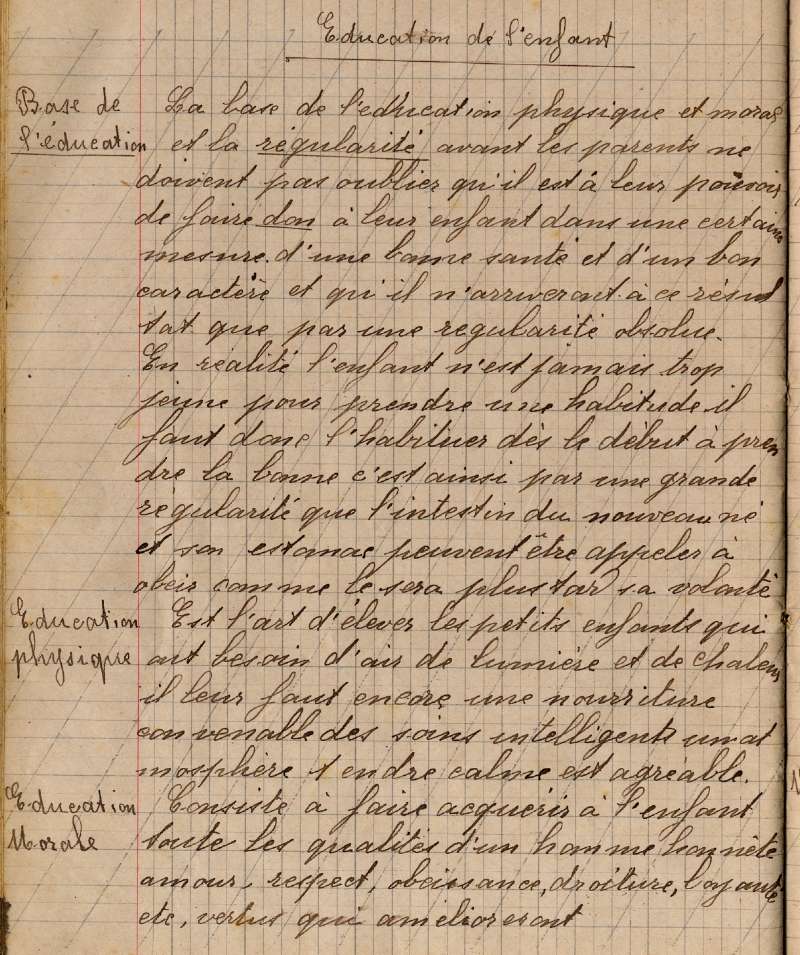 Education de l'enfant
Base de
l'éducation
La base de l'éducation physique et moral
et la régularité avant les parents ne
doivent pas oublier qu'il est à leur pouvoir
de faire don à leur enfant dans une certaine
mesure. d'une bonne santé et d'un bon
caractère et qu'il n'arriveront à ce résul
tat que par une regularité absolue.
En réalité l'enfant n'est jamais trop
jeune pour prendre une habitude il
faut donc l'habituer dès le début à pren
dre la bonne c'est ainsi par une grande
régularité que l'intestin du nouveau né
et son estomac peuvent être appeler à
obeir comme le sera plus tar sa volonté
Education
physique
Est l'art d'élever les petits enfants qui
ont besoin d'air de lumière et de chaleur
il leur faut encore une nourriture
convenable des soins intelligents un at
mosphère tendre calme est agréable.
Education
Morale
Consiste à faire acquérir à l'enfant
toute les qualités d'un homme honnête
amour, respect, obeissance, droiture, loyauté
etc, vertus qui amélioreront